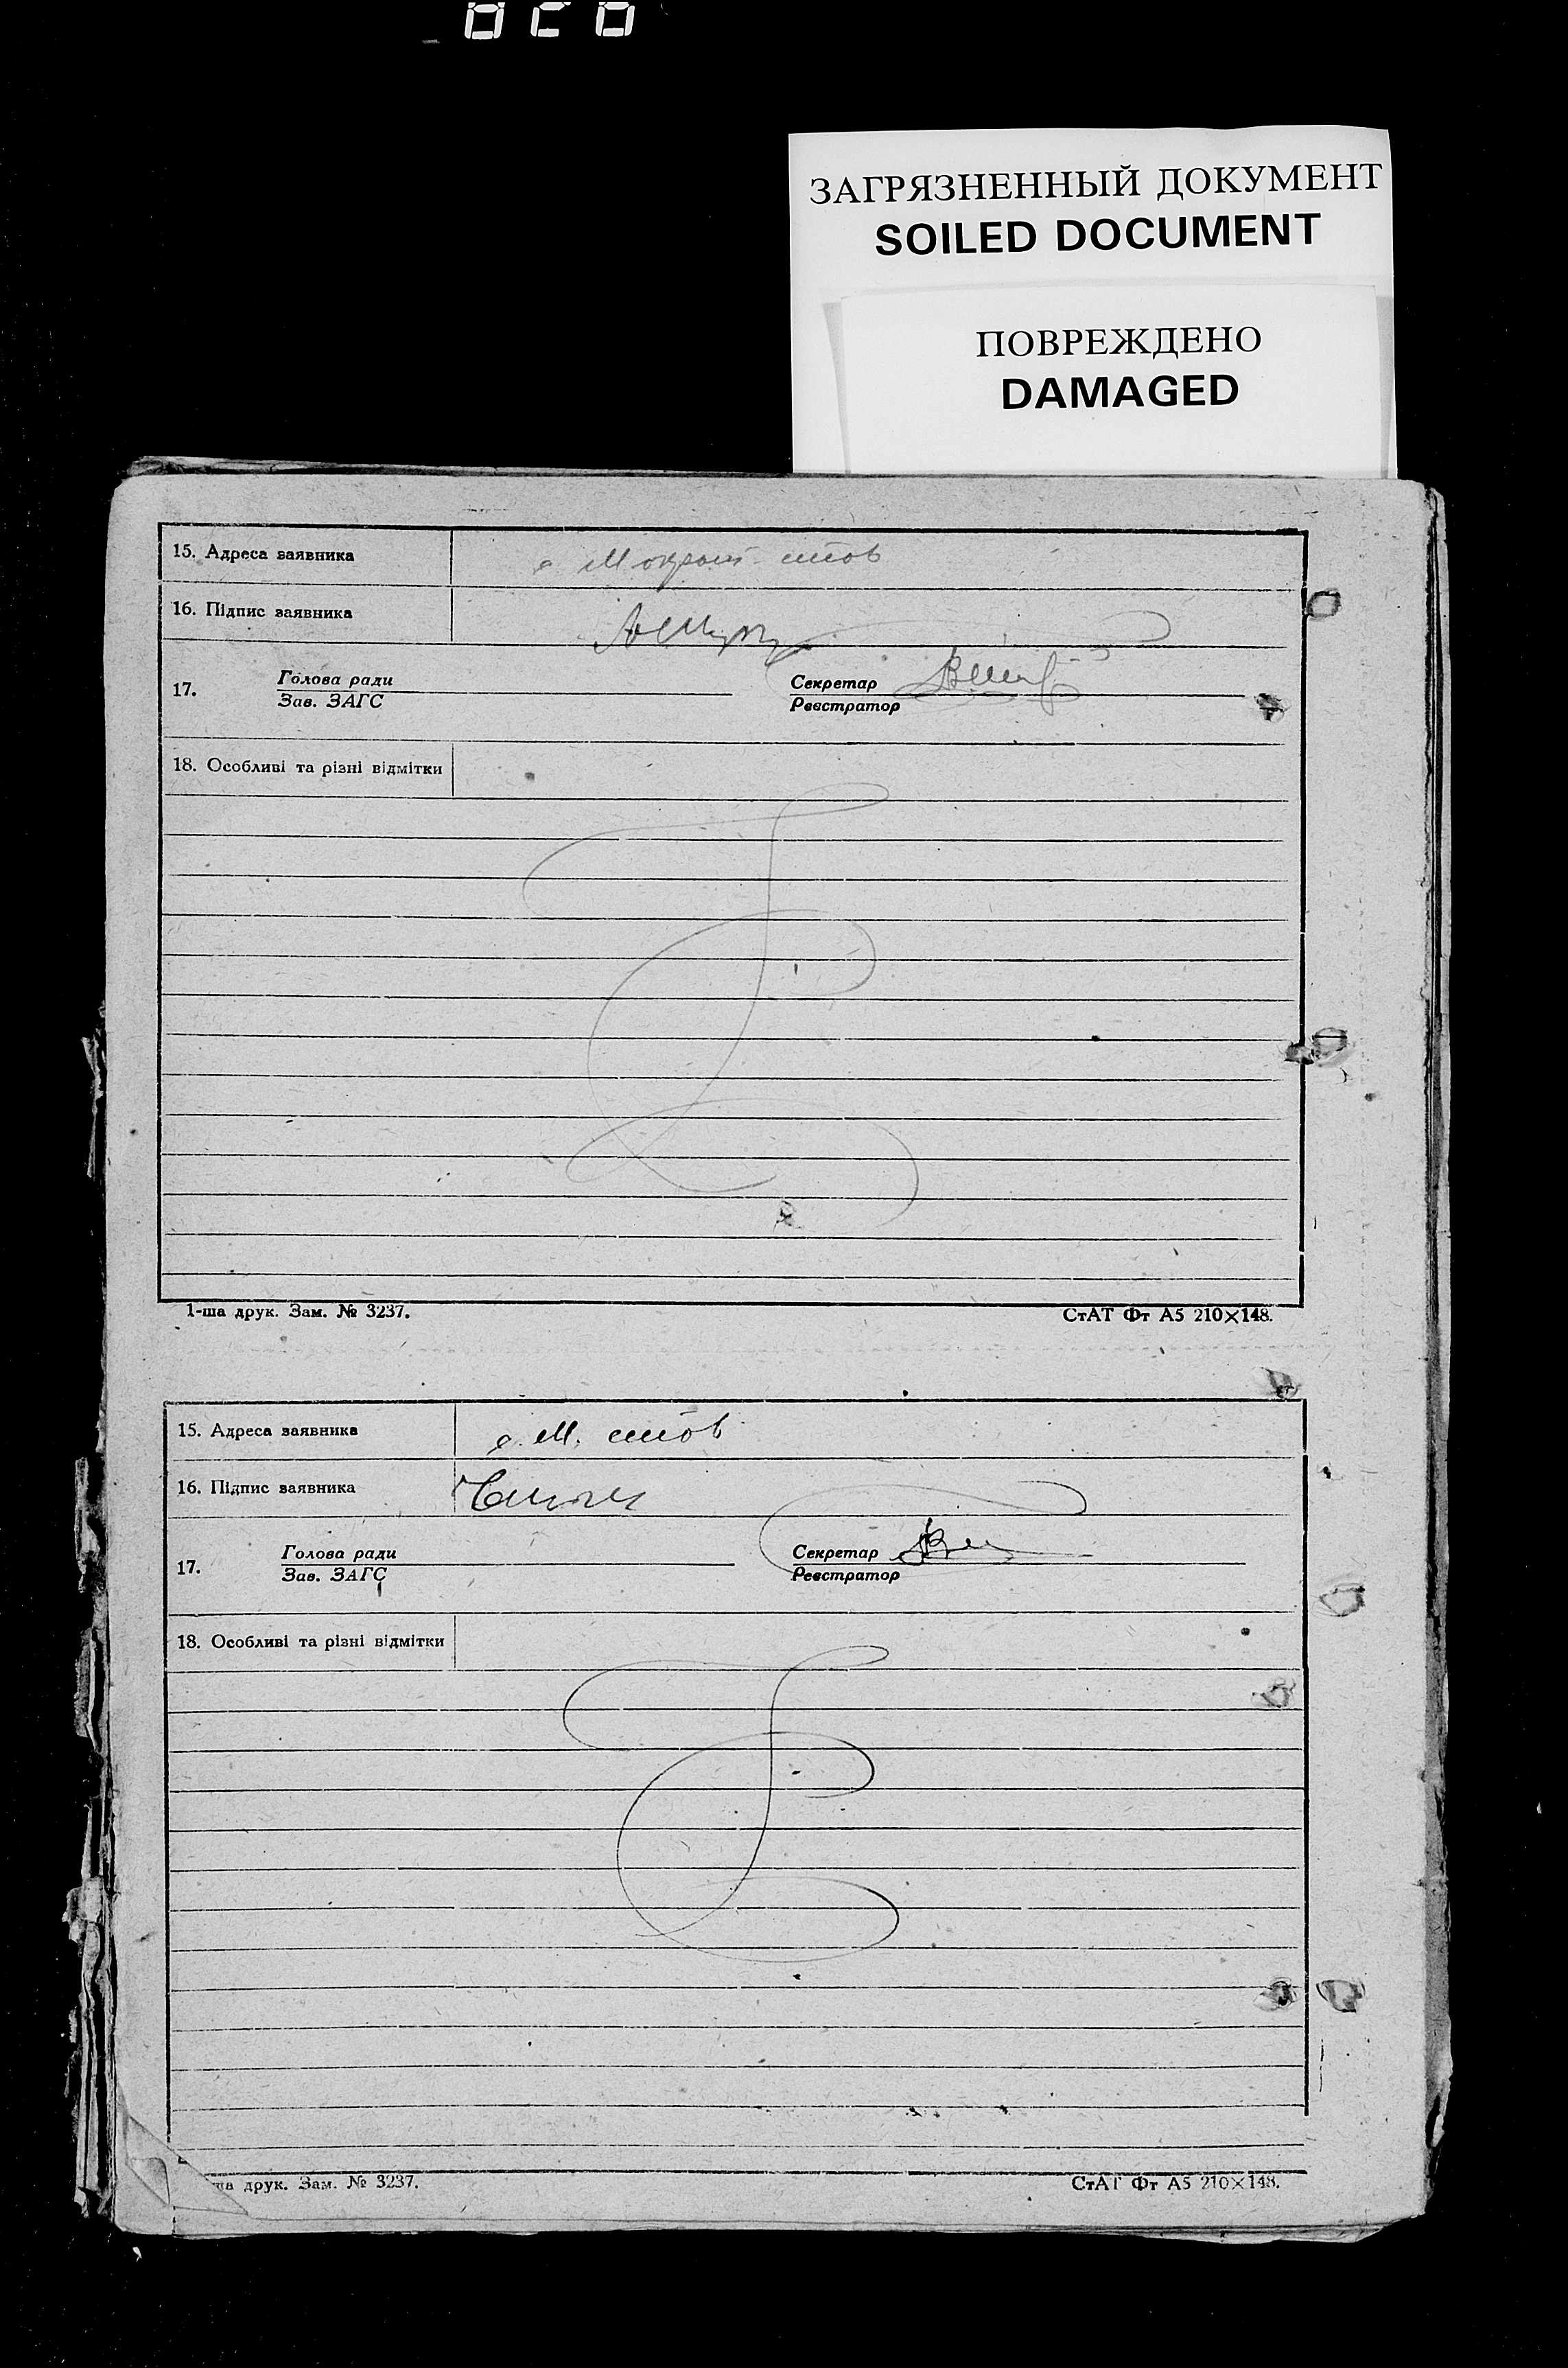 ЗАГРЯЗНЕННЫЙ ДОКУМЕНТ
SOILED DOCUMENT
ПОВРЕЖДЕНО
DAMAGED
15. Адреса заявника
16. Підпис заявника
17. Голова ради Секретар
Зав. ЗАГС Реєстратор
18. Особливі та різні відмітки
1-ша друк. Зам. № 3237. СтАТ Фт А5 210×148.
15. Адреса заявника с. М.
16. Підпис заявника
17. Голова ради Секретар
Зав. ЗАГС Реєстратор
18. Особливі та різні відмітки
ша друк. Зам. № 3237. СтАТ Фт А5 210×148.